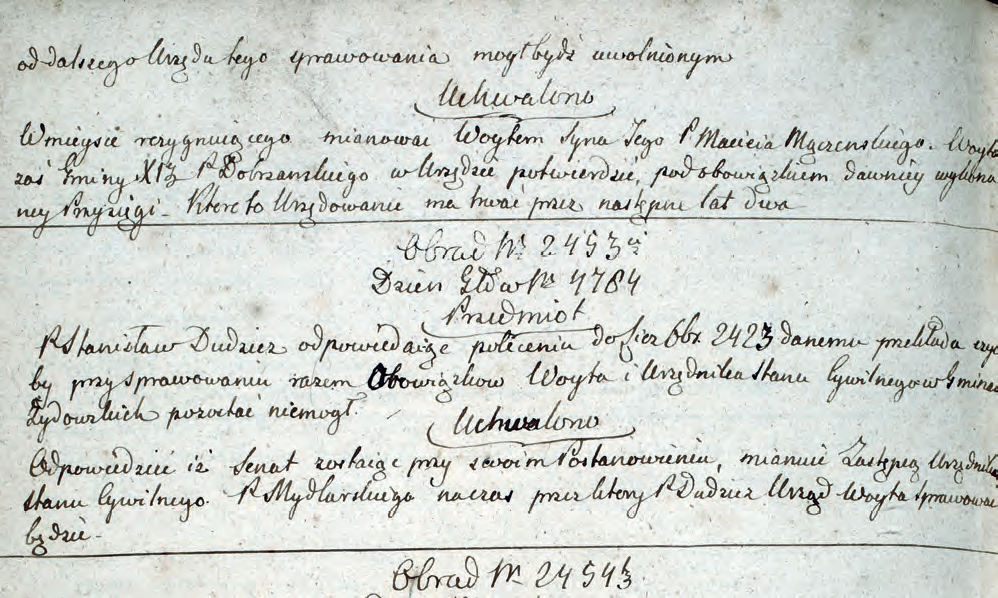 od dalszego Urzędu tego sprawowania mógł bydź uwolnionym
Uchwalono
W mieysce rezygnuiącego mianować Woytem Syna Jego P Macieia Mączenskiego. Woyta
zaś Gminy P Dobrzanskiego w Urzędzie potwierdzić, pod obowiązkiem dawniey wykona
ney Przysięgi - Które to Urzędowanie ma trwać przez następne lat dwa
Obrad Nr 2453
Dzien Głów Nr 4784
Przedmiot
P Stanisław Dudzicz odpowiedaiąc poleceniu do licz Obr. 2423 danemu przekłada iżyż
by przy sprawowaniu razem Obowiązkow Woyta i Urzędnika Stanu Cywilnego w Gminach
Żydowskich pozostać niemogł.
Uchwalono
Odpowiedzieć iż Senat zostaiąc przy swoim Postanowieniu, mianuie Zastępcą Urzędnika
Stanu Cywilnego P Mydlarskiego na czas przez ktory P Dudzicz Urząd Woyta sprawować
będzie -
Obrad Nr 2454